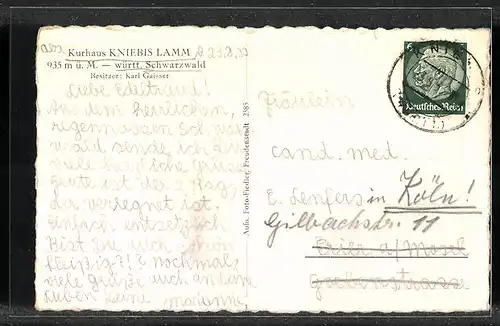 Kurhaus KNIEBIS LAMM
935 m ü. M. — württ. Schwarzwald
Besitzer: Karl Gaisser
d. 23.8.33
Liebe Edeltraud!
Aus dem herrlichen,
regennassen Schwarz-
wald sende ich dir
viele herzliche Grüsse
Heute ist der 2. Tag,
da verregnet ist.
Einfach entsetzlich
Bist Du auch schön
fleißig?!? Nochmals
viele Grüße auch an
Lieben Deine Marianne
Aufn. Foto-Fiedler, Freudenstadt 2585
Deutsches Reich
6
Fräulein
cand. med.
E. Lenfers in Köln!
Gilbachstr. 11
Trier a/Mosel